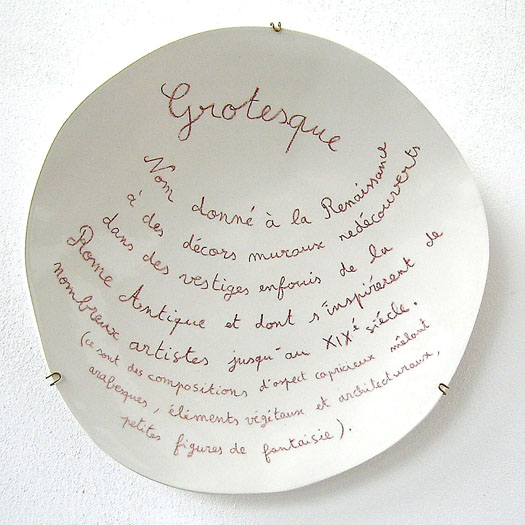 Grotesque
Nom donné à la Renaissance
à des décors muraux redécouverts
dans des vestiges enfouis de la
Rome Antique et dont s'inspirèrent de
nombreux artistes jusqu'au XIXè siècle.
(ce sont des compositions d'aspect capricieux mêlant
arabesques, éléments végétaux et architecturaux,
petites figures de fantaisie).